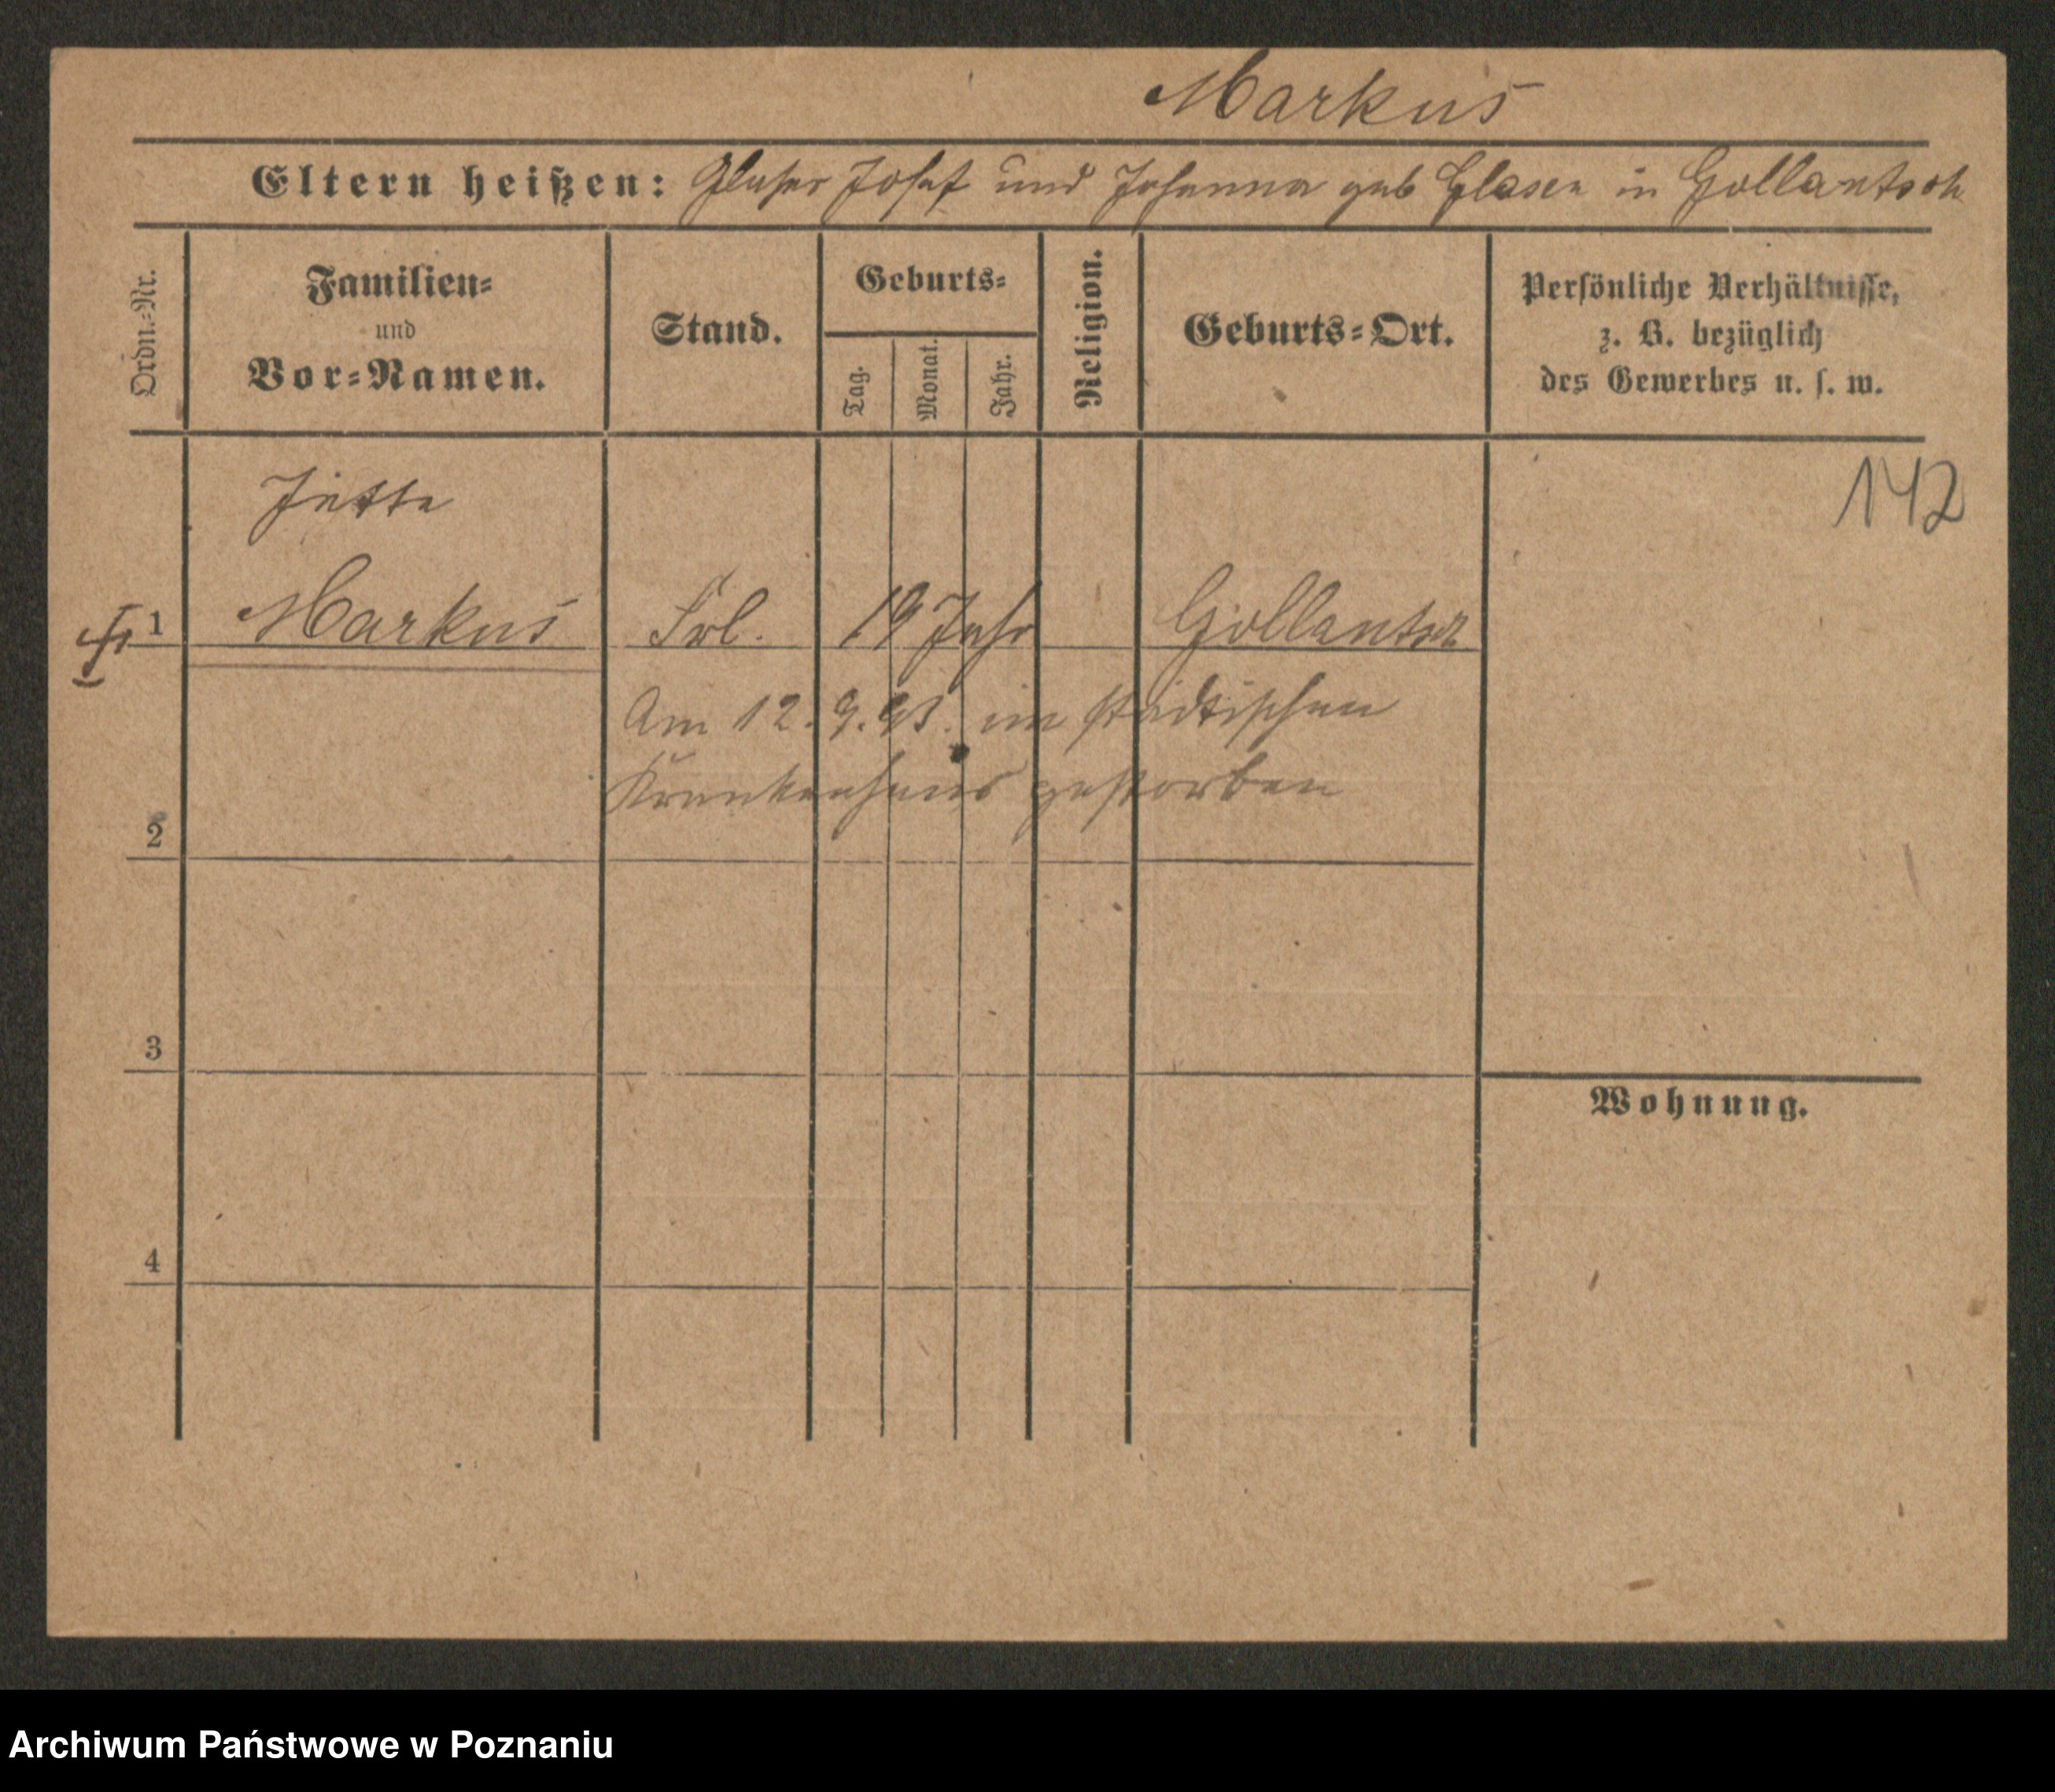 Markus
Eltern heißen: Glaser Josef und Johanna geb Glaser in Gollantsch
Ordn.-Nr.
Familien-
und
Vor-Namen.
Stand.
Geburts-
Tag.
Monat.
Jahr.
Religion.
Geburts-Ort.
Persönliche Verhältnisse,
z. B. bezüglich
des Gewerbes u. s. w.
142
Jette
1 Markus Frl. 19 Jahr Gollantsch
Am 12. 9. 93. im städtischen
Krankenhaus gestorben
2
3
Wohnung.
4
Archiwum Państwowe w Poznaniu